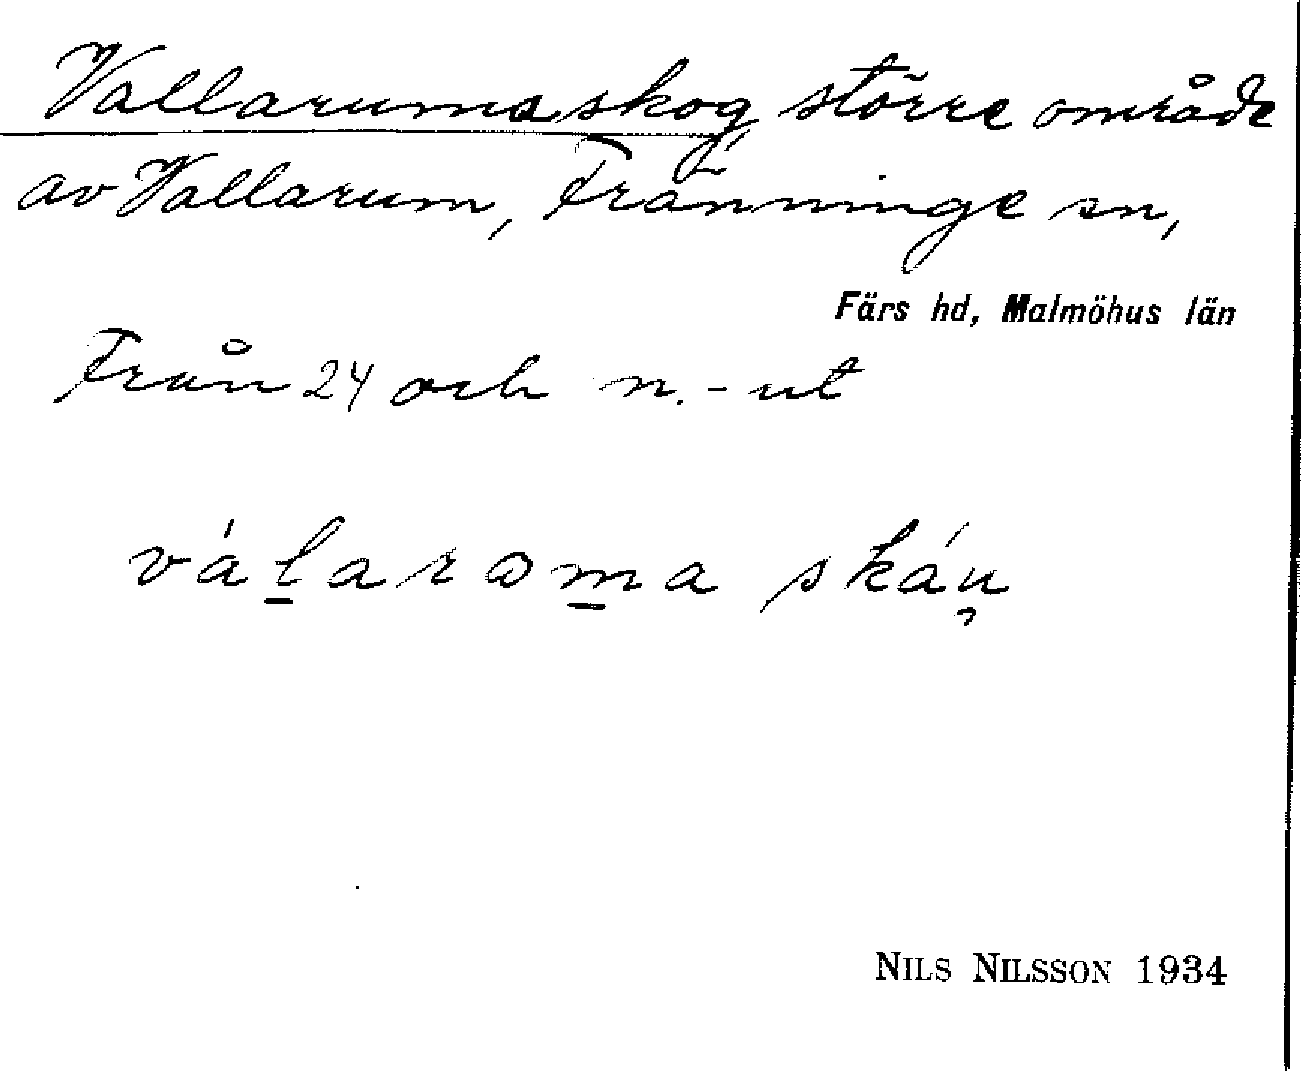 Vallaruma skog större område
av Vallarum, Fränninge sn,
Färs hd, Malmöhus län
Från 24 och n.-ut
vál̲arɷm̲a skáu̡
NILS NILSSON 1934